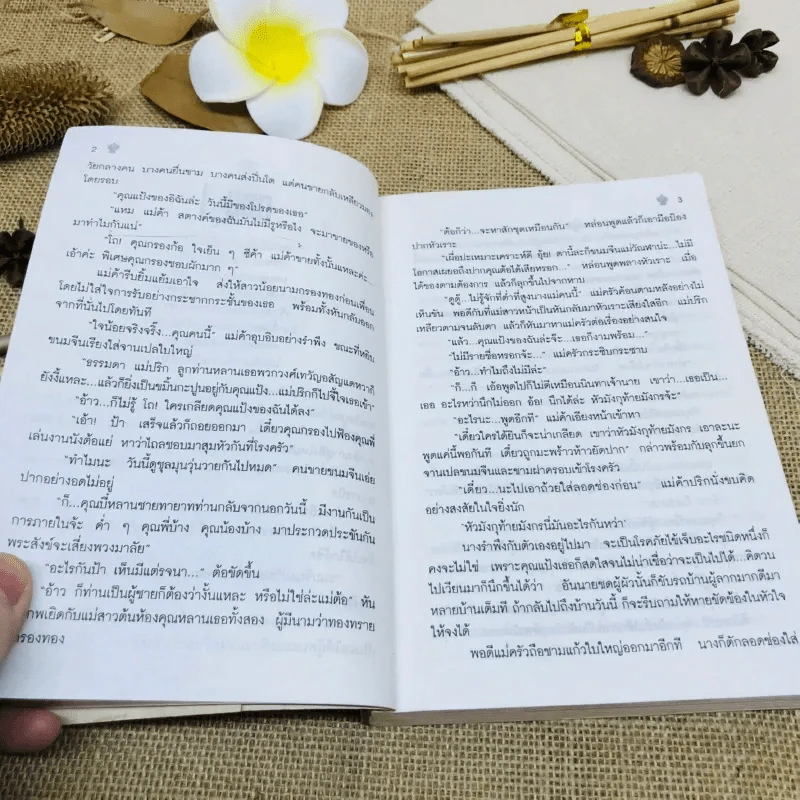 2
วัยกลางคน บางคนยื่นชาม บางคนส่งปิ่นโต แต่คนขายกลับเหลียวมอง
โดยรอบ
"คุณแป้งของอิฉันล่ะ วันนี้มีของโปรดของเธอ"
"แหม แม่ค้า สตางค์ของฉันมันไม่มีรูหรือไง จะมาขายของหรือ
มาทำไมกันแน่"
"โถ! คุณกรองก้อ ใจเย็น ๆ ซีค้า แม่ค้าขายทั้งนั้นแหละค่ะ
เอ้าค่ะ พิเศษคุณกรองชอบผักมาก ๆ"
แม่ค้ารีบยิ้มแย้มเอาใจ ส่งให้สาวน้อยนามกรองทองก่อนเพื่อน
โดยไม่ใส่ใจการรับอย่างกระชากกระชั้นของเธอ พร้อมทั้งหันกลับออก
จากที่นั่นไปโดยทันที
"ใจน้อยจริงจริ๊ง...คุณคนนี้" แม่ค้าอุบอิบอย่างรำพึง ขณะที่หยิบ
ขนมจีนเรียงใส่จานเปลใบใหญ่
"ธรรมดา แม่ปริก ลูกท่านหลานเธอพวกวงศ์เทวัญอสัญแดหวาก็
ยังงี้แหละ...แล้วก็ยิ่งเป็นขมิ้นกะปูนอยู่กับคุณแป้ง...แม่ปริกก็ไปจี้ใจเธอเข้า"
"อ้าว...ก็ไม่รู้ โถ! ใครเกลียดคุณแป้งของฉันได้ลง"
"เอ้า! ป้า เสร็จแล้วก็ถอยออกมา เดี๋ยวคุณกรองไปฟ้องคุณพี่
เล่นงานนังต้อยแย่ หาว่าไถลชอบมาสุมหัวกันที่โรงครัว"
"ทำไมนะ วันนี้ดูชุลมุนวุ่นวายกันไปหมด" คนขายขนมจีนเอ่ย
ปากอย่างอดไม่อยู่
"ก็...คุณบี๋หลานชายทายาทท่านกลับจากนอกวันนี้ มีงานกันเป็น
การภายในจ้ะ ค่ำ ๆ คุณพี่บ้าง คุณน้องบ้าง มาประกวดประชันกัน
พระสังข์จะเสี่ยงพวงมาลัย"
"อะไรกันป้า เห็นมีแต่รจนา..." ต้อขัดขึ้น
"อ้าว ก็ท่านเป็นผู้ชายก็ต้องว่างั้นแหละ หรือไม่ใช่ล่ะแม่ต้อ" หัน
พเยิดกับแม่สาวต้นห้องคุณหลานเธอทั้งสอง ผู้มีนามว่าทองทราย
กรองทอง
3
"ต้อก็ว่า...จะหาสักชุดเหมือนกัน" หล่อนพูดแล้วก็เอามือป้อง
ปากหัวเราะ
"เผื่อปะเหมาะเคราะห์ดี อุ้ย! ตานี้ละก็ขนมจีนแม่วัณฬาน่ะ...ไม่มี
โอกาสเผยอถึงปากคุณต้อได้เสียหรอก..." หล่อนพูดพลางหัวเราะ เมื่อ
ได้ของตามต้องการ แล้วก็ลุกขึ้นไปจากหาบ
"ดูดู๊...ไม่รู้จักที่ต่ำที่สูงนางแม่คนนี้" แม่ครัวค้อนตามหลังอย่างไม่
เห็นขัน พอดีกับที่แม่สาวหน้าเป็นหันกลับมาหัวเราะเสียงใสอีก แม่ปริก
เหลียวตามจนลับตา แล้วก็หันมาหาแม่ครัวต่อเรื่องอย่างสนใจ
"แล้ว...คุณแป้งของฉันล่ะจ๊ะ...เธอก็งามพร้อม..."
"ไม่มีรายชื่อหรอกจ้ะ..." แม่ครัวกระซิบกระซาบ
"อ้าว...ทำไมถึงไม่มีล่ะ"
"ก็...ก็ เอ้อพูดไปก็ไม่ดีเหมือนนินทาเจ้านาย เขาว่า...เธอเป็น...
เออ อะไรหว่านึกไม่ออก อ้อ! นึกได้ล่ะ หัวมังกุท้ายมังกรจ้ะ"
"อะไรนะ...พูดอีกที" แม่ค้าเอียงหน้าเข้าหา
"เดี๋ยวใครได้ยินก็จะน่าเกลียด เขาว่าหัวมังกุท้ายมังกร เอาละนะ
พูดแค่นี้พอกันที เดี๋ยวถูกมะพร้าวห้าวยัดปาก" กล่าวพร้อมกับลุกขึ้นยก
จานเปลขนมจีนและชามฝาครอบเข้าโรงครัว
"เดี๋ยว...นะไปเอาถ้วยใส่ลอดช่องก่อน" แม่ค้าปริกนั่งขบคิด
อย่างสงสัยในใจยิ่งนัก
'หัวมังกุท้ายมังกรนี่มันอะไรกันหว่า'
นางรำพึงกับตัวเองอยู่ไปมา จะเป็นโรคภัยไข้เจ็บอะไรชนิดหนึ่งก็
คงจะไม่ใช่ เพราะคุณแป้งเธอก็สดใสจนไม่น่าเชื่อว่าจะเป็นไปได้...คิดวน
ไปเวียนมาก็นึกขึ้นได้ว่า อันนายชดผู้ผัวนั้นก็ขับรถบ้านผู้ลากมากดีมา
หลายบ้านเต็มที ถ้ากลับไปถึงบ้านวันนี้ ก็จะรีบถามให้หายขัดข้องในหัวใจ
ให้จงได้
พอดีแม่ครัวถือชามแก้วใบใหญ่ออกมาอีกที นางก็ตักลอดช่องใส่